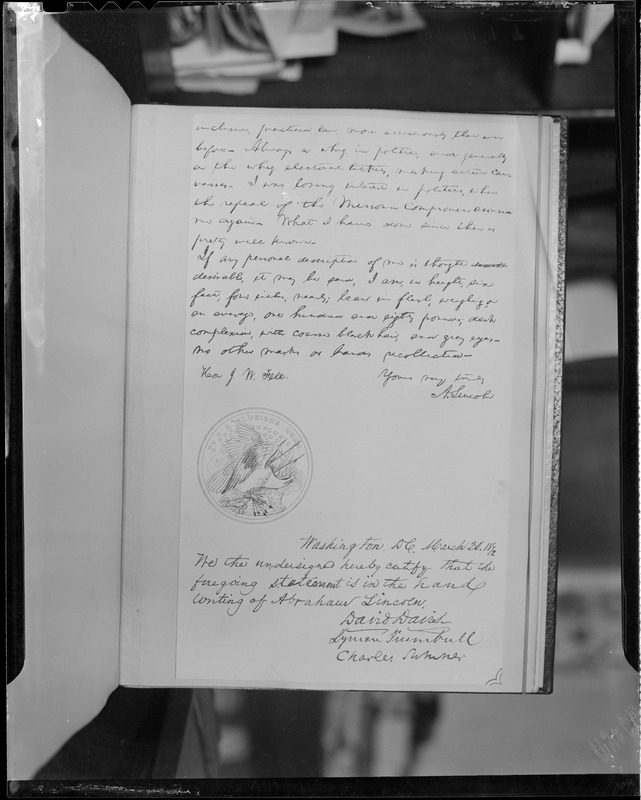 inclusive, practiced law more assiduously than ever
before. Always a whig in politics, and generally
on the whig electoral tickets, making active can-
vasses. I was losing interest in politics, when
the repeal of the Missouri Compromise aroused
me again. What I have done since then is
pretty well known.
If any personal description of me is thought
desirable, it may be said, I am, in height, six
feet, four inches, nearly; lean in flesh, weighing, on
an average, one hundred and eighty pounds; dark
complexion, with coarse black hair, and grey eyes—
no other marks or brands recollected—
Hon J. W. Fell. Yours very truly
A. Lincoln
E PLURIBUS UNUM
Washington, DC, March 20. 18
We the undersigned hereby certify that the
foregoing statement is in the hand
writing of Abraham Lincoln.
David Davis
Lyman Trumbull
Charles Sumner